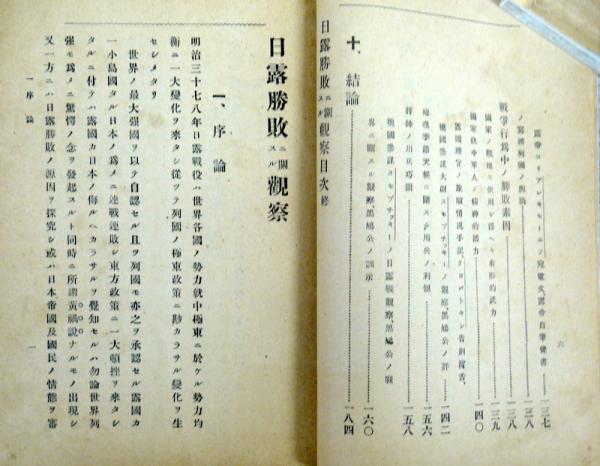 露帝ヨリアレキセーエフ宛電文、露帝自筆勅書………一三七
ノ交戦列國ノ輿論………一三八
戰爭行爲中ノ勝敗素因………一三八
國家ノ戰爭ニ使用シ得ヘキ有形的武力………一三九
國家及ヒ軍人ノ精神的活力………一四〇
獨國參謀大尉スセプチツキーノ觀察黑鳩公ノ評………一四二
地理季節天候ニ關スル用兵ノ利個………一五六
將帥ノ用兵巧拙………一五八
墺國參謀スセプチツキーノ日露戰觀察、黑鳩公ノ戰
界ニ關スル觀察黑鳩公ノ訓示………一六〇
十、結論………一八四
日露勝敗ニ關スル觀察目次終
六
日露勝敗ニ關スル觀察
一、序論
明治三十七八年日露戰役ハ世界各國ノ勢力就中極東ニ於ケル勢力均
衡ニ一大變化ヲ來タシ從ツテ列國ノ極東政策ニ尠カラサル變化ヲ生
セシメタリ
世界ノ最大强國ヲ以テ自認セル且ツ列國モ亦之ヲ承認セル露國カ
一小島國タル日本ノ爲メニ連戰連敗シ東方政策ニ一大頓挫ヲ來タシ
タルニ付テハ露國カ日本ノ侮ルヘカラサルヲ覺知セルハ勿論世界列
强モ爲メニ驚愕ノ念ヲ發起スルト同時ニ所謂黃禍說ナルモノ出現シ
又一方ニハ日露勝敗ノ源因ヲ探究シ或ハ日本帝國及國民ノ情態ヲ審
一序論
一